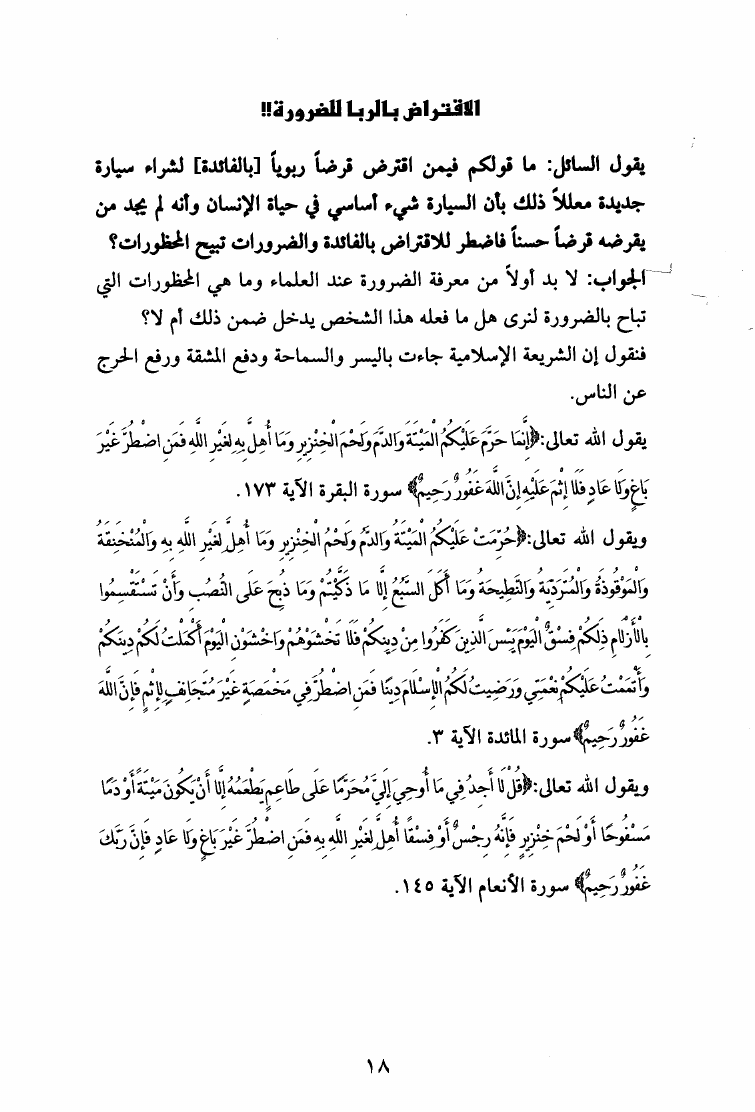 الاقتراض بالربا للضرورة!!
يقول السائل: ما قولكم فيمن اقترض قرضاً ربوياً [بالفائدة] لشراء سيارة
جديدة معللاً ذلك بأن السيارة شيء أساسي في حياة الإنسان وأنه لم يجد من
يقرضه قرضاً حسناً فاضطر للاقتراض بالفائدة والضرورات تبيح المحظورات؟
الجواب: لا بد أولاً من معرفة الضرورة عند العلماء وما هي المحظورات التي
تباح بالضرورة لنرى هل ما فعله هذا الشخص يدخل ضمن ذلك أم لا؟
فنقول إن الشريعة الإسلامية جاءت باليسر والسماحة ودفع المشقة ورفع الحرج
عن الناس.
يقول الله تعالى:﴿إِنَّمَا حَرَّمَ عَلَيْكُمُ الْمَيْتَةَ وَالدَّمَ وَلَحْمَ الْخِنْزِيرِ وَمَا أُهِلَّ بِهِ لِغَيْرِ اللَّهِ فَمَنِ اضْطُرَّ غَيْرَ
بَاغٍ وَلَا عَادٍ فَلَا إِثْمَ عَلَيْهِ إِنَّ اللَّهَ غَفُورٌ رَحِيمٌ﴾ سورة البقرة الآية ١٧٣.
ويقول الله تعالى:﴿حُرِّمَتْ عَلَيْكُمُ الْمَيْتَةُ وَالدَّمُ وَلَحْمُ الْخِنْزِيرِ وَمَا أُهِلَّ لِغَيْرِ اللَّهِ بِهِ وَالْمُنْخَنِقَةُ
وَالْمَوْقُوذَةُ وَالْمُتَرَدِّيَةُ وَالنَّطِيحَةُ وَمَا أَكَلَ السَّبُعُ إِلَّا مَا ذَكَّيْتُمْ وَمَا ذُبِحَ عَلَى النُّصُبِ وَأَنْ تَسْتَقْسِمُوا
بِالْأَزْلَامِ ذَلِكُمْ فِسْقٌ الْيَوْمَ يَئِسَ الَّذِينَ كَفَرُوا مِنْ دِينِكُمْ فَلَا تَخْشَوْهُمْ وَاخْشَوْنِ الْيَوْمَ أَكْمَلْتُ لَكُمْ دِينَكُمْ
وَأَتْمَمْتُ عَلَيْكُمْ نِعْمَتِي وَرَضِيتُ لَكُمُ الْإِسْلَامَ دِينًا فَمَنِ اضْطُرَّ فِي مَخْمَصَةٍ غَيْرَ مُتَجَانِفٍ لِإِثْمٍ فَإِنَّ اللَّهَ
غَفُورٌ رَحِيمٌ﴾ سورة المائدة الآية ٣.
ويقول الله تعالى:﴿قُلْ لَا أَجِدُ فِي مَا أُوحِيَ إِلَيَّ مُحَرَّمًا عَلَى طَاعِمٍ يَطْعَمُهُ إِلَّا أَنْ يَكُونَ مَيْتَةً أَوْ دَمًا
مَسْفُوحًا أَوْ لَحْمَ خِنْزِيرٍ فَإِنَّهُ رِجْسٌ أَوْ فِسْقًا أُهِلَّ لِغَيْرِ اللَّهِ بِهِ فَمَنِ اضْطُرَّ غَيْرَ بَاغٍ وَلَا عَادٍ فَإِنَّ رَبَّكَ
غَفُورٌ رَحِيمٌ﴾ سورة الأنعام الآية ١٤٥.
١٨